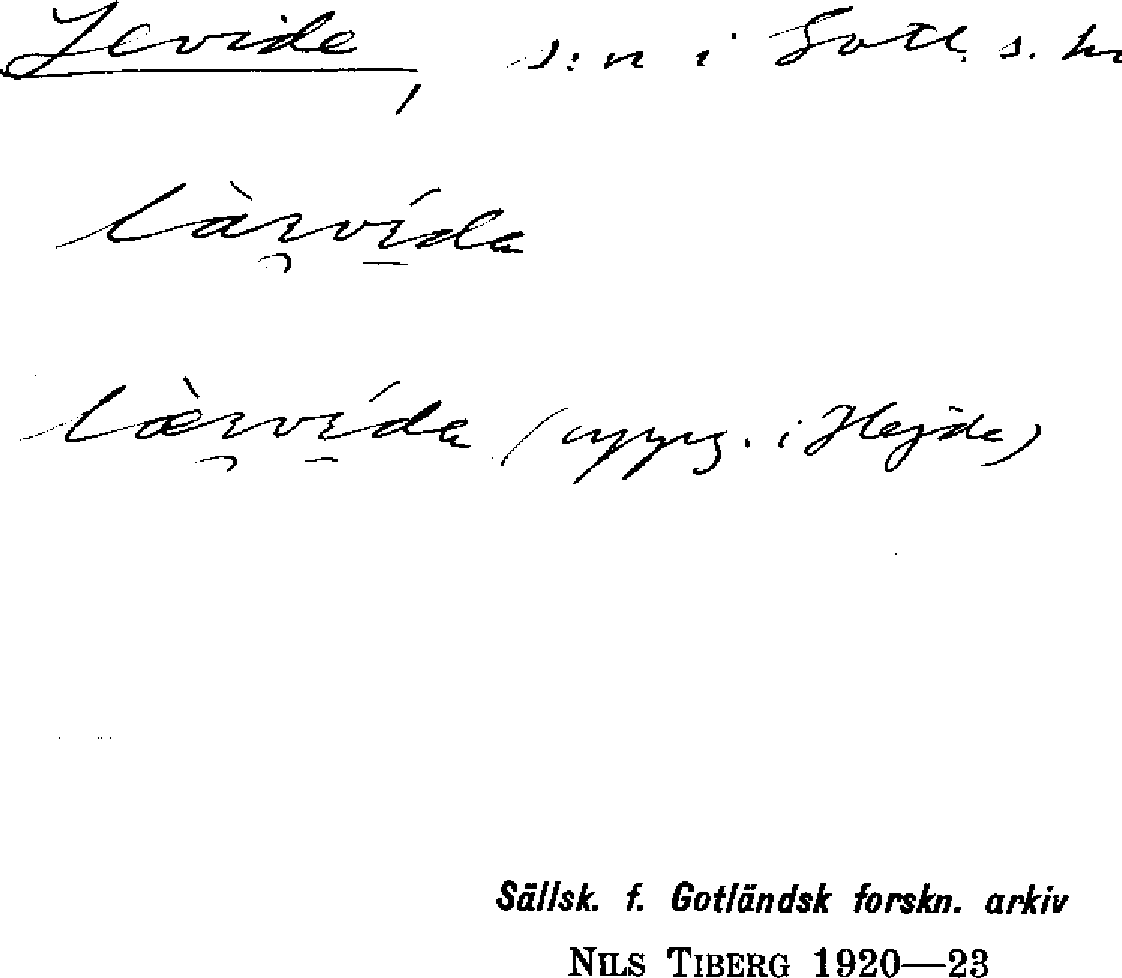 Levide, s:n i Gotl. s. hd
làrvída
lèrvída (uppg. i Hejde)
Sällsk. f. Gotländsk forskn. arkiv
NILS TIBERG 1920—23